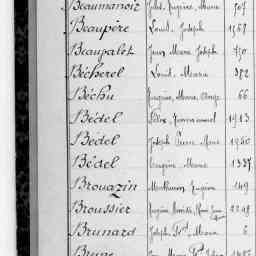 Beaumanoir Jules, Eugène, Marie 707
Beaupère Louis, Joseph 1567
Beaupalet Jean Marie Joseph 750
Bécherel Louis, Marie 372
Béchu Eugène, Marie, Ange 66
Bédel 1913
Bédel Joseph Pierre Marie 1960
Bédel Eugène, Marie 1337
Brouazin Mathurin Eugène 149
Broussier Eugène 2248
Brunard Joseph, Marie 6
Brune